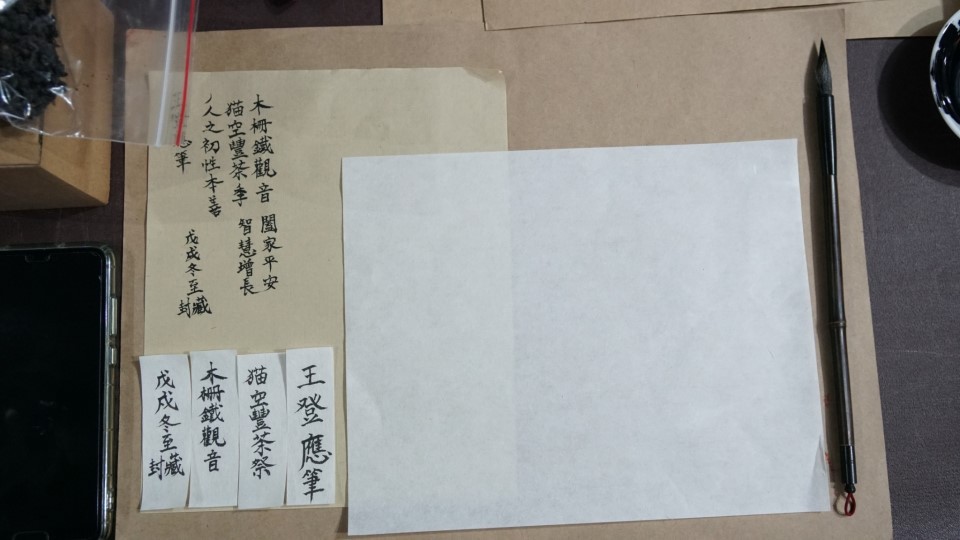 木柵鐵觀音 闔家平安
猫空豐茶季 智慧增長
人之初性本善
戊戌冬至封藏
筆
王登應筆
猫空豐茶祭
木柵鐵觀音
戊戌冬至封藏